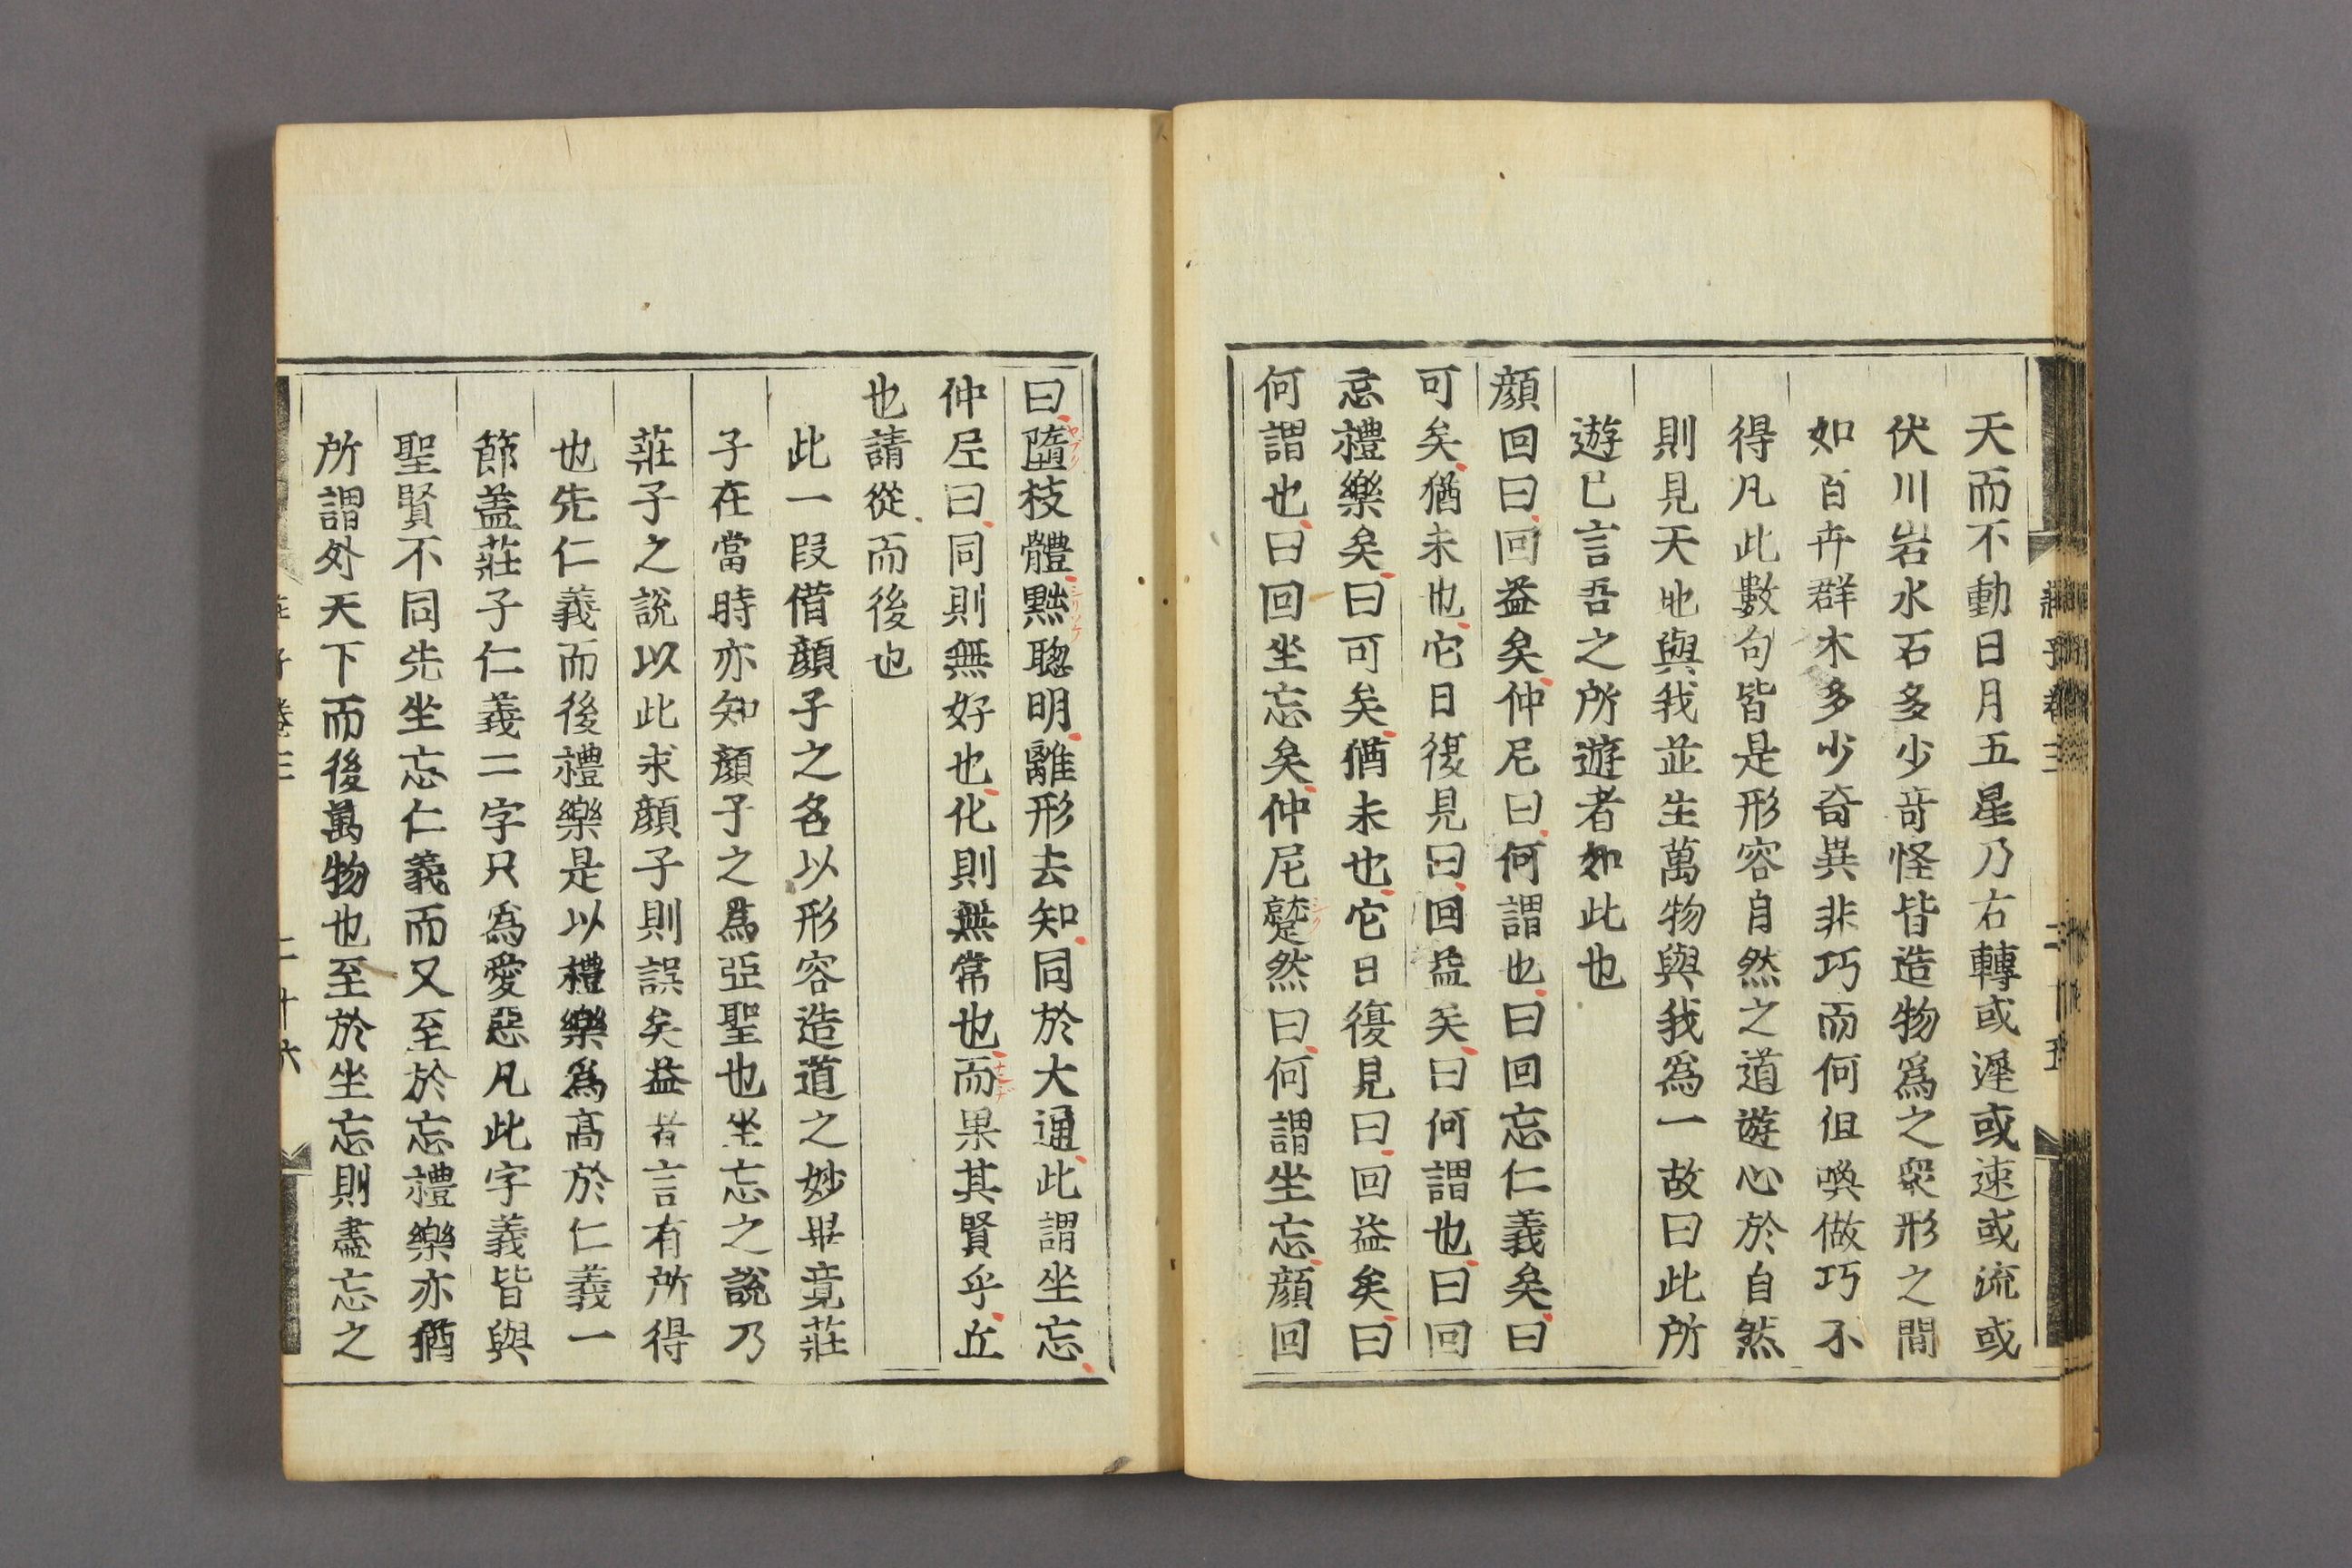 天而不動日月五星乃右轉或遲或速或流或
伏川岩水石多少竒怪皆造物爲之衆形之間
如百卉群木多少奇異非巧而何但喚做巧不
得凡此數句皆是形容自然之道遊心於自然
則見天地與我並生萬物與我爲一故曰此所
遊已言吾之所遊者如此也
顔回曰回益矣仲尼曰何謂也曰回忘仁義矣曰
可矣猶未也它日復見曰回益矣曰何謂也曰回
忘禮樂矣曰可矣猶未也它日復見曰回益矣曰
何謂也曰回坐忘矣仲尼蹵然曰何謂坐忘顔回
シク
曰墮枝體黜聰明離形去知同於大通此謂坐忘
ヤブリ
シリソケ
仲尼曰同則無好也化則無常也而果其賢乎丘
ナンヂ
也請從而後也
此一段借顔子之名以形容造道之妙畢竟莊
子在當時亦知顔子之爲亞聖也坐忘之說乃
莊子之說以此求顔子則誤矣益者言有所得
也先仁義而後禮樂是以禮樂爲高於仁義一
節蓋莊子仁義二字只爲愛惡凡此字義皆與
聖賢不同先坐忘仁義而又至於忘禮樂亦猶
所謂外天下而後萬物也至於坐忘則盡忘之
莊子卷三 二十六